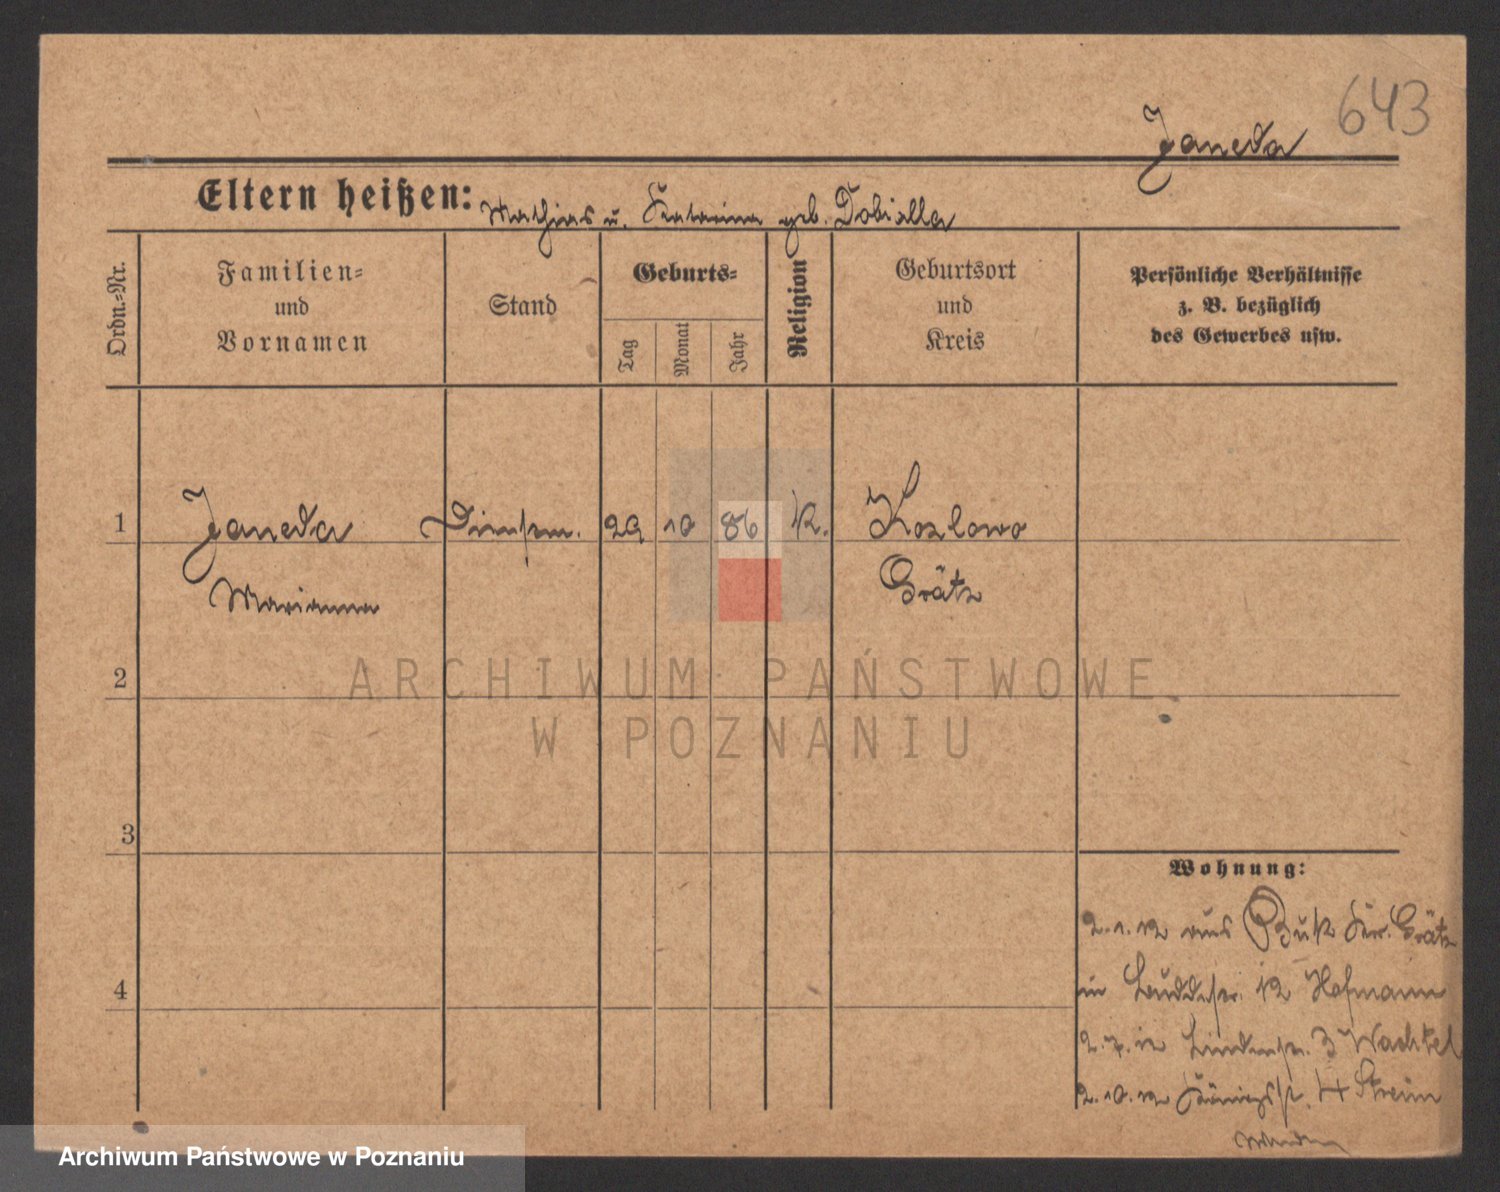 643
Janeda
Eltern heißen: Mathias u. Katarina geb. Dobialla
Ordn.-Nr.
Familien-
und
Vornamen
Stand
Geburts-
Tag
Monat
Jahr
Religion
Geburtsort
und
Kreis
Persönliche Verhältnisse
z. B. bezüglich
des Gewerbes usw.
1 Janeda Dienstm. 29 10 86 K. Kozlowo
Marianna Grätz
2
3
4
ARCHIWUM PAŃSTWOWE
W POZNANIU
Wohnung:
2.1.12 aus Buk Kr. Grätz
in 12 Hofmann
2.7.12 Lindenstr. 3 Wachtel
2.10.12 Königsstr. 4
Archiwum Państwowe w Poznaniu